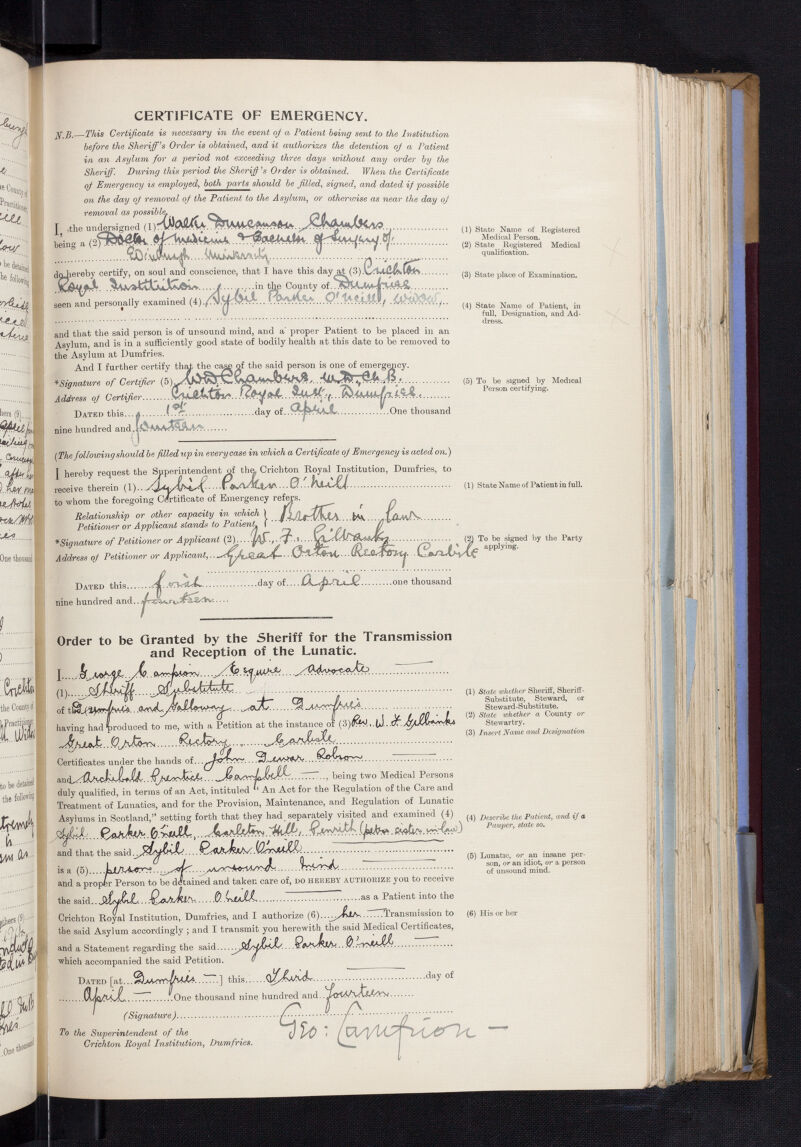 CERTIFICATE OF EMERGENCY.
N.B.—This Certificate is necessary in the event of a Patient being sent to the Institution
before the Sheriff's Order is obtained, and it authorizes the detention of a Patient
in an Asylum for a period not exceeding three days without any order by the
Sheriff. During this period the Sheriff's Order is obtained. When the Certificate
of Emergency is employed, both parts should be filled, signed, and dated if possible
on the day of removal of the Patient to the Asylum, or otherwise as near the day of
removal as possible.
I, the undersigned (1) Walter Duncanson Chambers
being a (2) Doctor of Medicine & Bachelor of Surgery of
Edinburgh University
do hereby certify, on soul and conscience, that I have this day at (3) Crichton
Royal Institution in the County of Dumfries
seen and personally examined (4) Sybil Parker O'Neill, widow,
and that the said person is of unsound mind, and a proper Patient to be placed in an
Asylum, and is in a sufficiently good state of bodily health at this date to be removed to
the Asylum at Dumfries.
And I further certify that the case of the said person is one of emergency.
*Signature of Certifier (5) WD Chambers M.D., Ch.B.
Address of Certifier Crichton Royal Inst., Dumfries.
DATED this 1st day of April One thousand
nine hundred and fourteen
(The following should be filled up in every case in which a Certificate of Emergency is acted on.)
I hereby request the Superintendent of the Crichton Royal Institution, Dumfries, to
receive therein (1) Sybil Parker O'Neill
to whom the foregoing Certificate of Emergency refers.
Relationship or other capacity in which } Brother in law
Petitioner or Applicant stands to Patient,
*Signature of Petitioner or Applicant (2) W. F. Gilbanks
Address of Petitioner or Applicant, Great Orton Rectory Carlisle
DATED this first day of April one thousand
nine hundred and fourteen
Order to be Granted by the Sheriff for the Transmission
and Reception of the Lunatic.
I George Campion Esquire Advocate
(1) Sheriff Substitute
of the Dumfries and Galloway at Dumfries
having had produced to me, with a Petition at the instance of (3) Rev. W. F. Gilbanks
Great Orton Rectory, Carlisle
Certificates under the hands of John Dewar Robson
and Archibald Prentice Campbell, being two Medical Persons
duly qualified, in terms of an Act, intituled "An Act for the Regulation of the Care and
Treatment of Lunatics, and for the Provision, Maintenance, and Regulation of Lunatic
Asylums in Scotland," setting forth that they had separately visited and examined (4)
Sybil Parker O'neill, Carleton Hill, Penrith (petrs sister in law)
and that the said Sybil Parker O'neill
is a (5) person of unsound mind
and a proper Person to be detained and taken care of, DO HEREBY AUTHORIZE you to receive
the said Sybil Parker O'neill as a Patient into the
Crichton Royal Institution, Dumfries, and I authorize (6) her Transmission to
the said Asylum accordingly; and I transmit you herewith the said Medical Certificates,
and a Statement regarding the said Sybil Parker O'neill
which accompanied the said Petition.
DATED [at Dumfries] this Third day of
April One thousand nine hundred and fourteen
(Signature) Geo: Campion
To the Superintendent of the
Crichton Royal Institution, Dumfries.
(1) State Name of Registered
Medical Person.
(2) State Registered Medical
qualification.
(3) State place of Examination.
(4) State Name of Patient, in
full, Designation, and Ad-
dress.
(5) To be signed by Medical
Person certifying.
(1) State Name of Patient in full.
(2) To be signed by the Party
applying.
(1) State whether Sheriff, Sheriff-
Substitute, Steward, or
Steward-Substitute.
(2) State whether a County or
Stewartry.
(3) Insert Name and Designation
(4) Describe the Patient, and if a
Pauper, state so.
(5) Lunatic, or an insane per-
son, or an idiot, or a person
of unsound mind.
(6) His or her